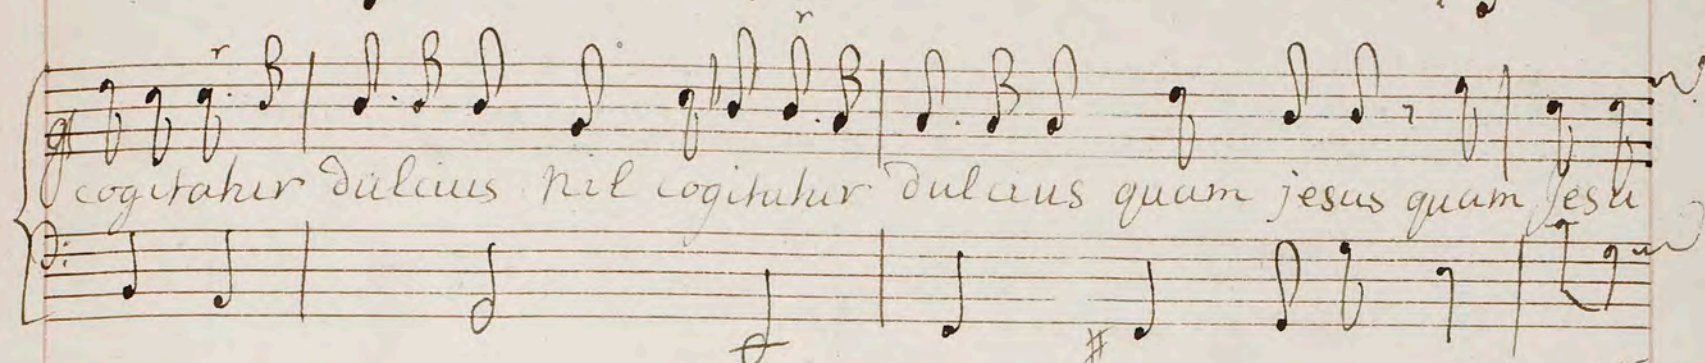 cogitatur dulcius nil cogitatur dulcius quam jesus quam Jesu